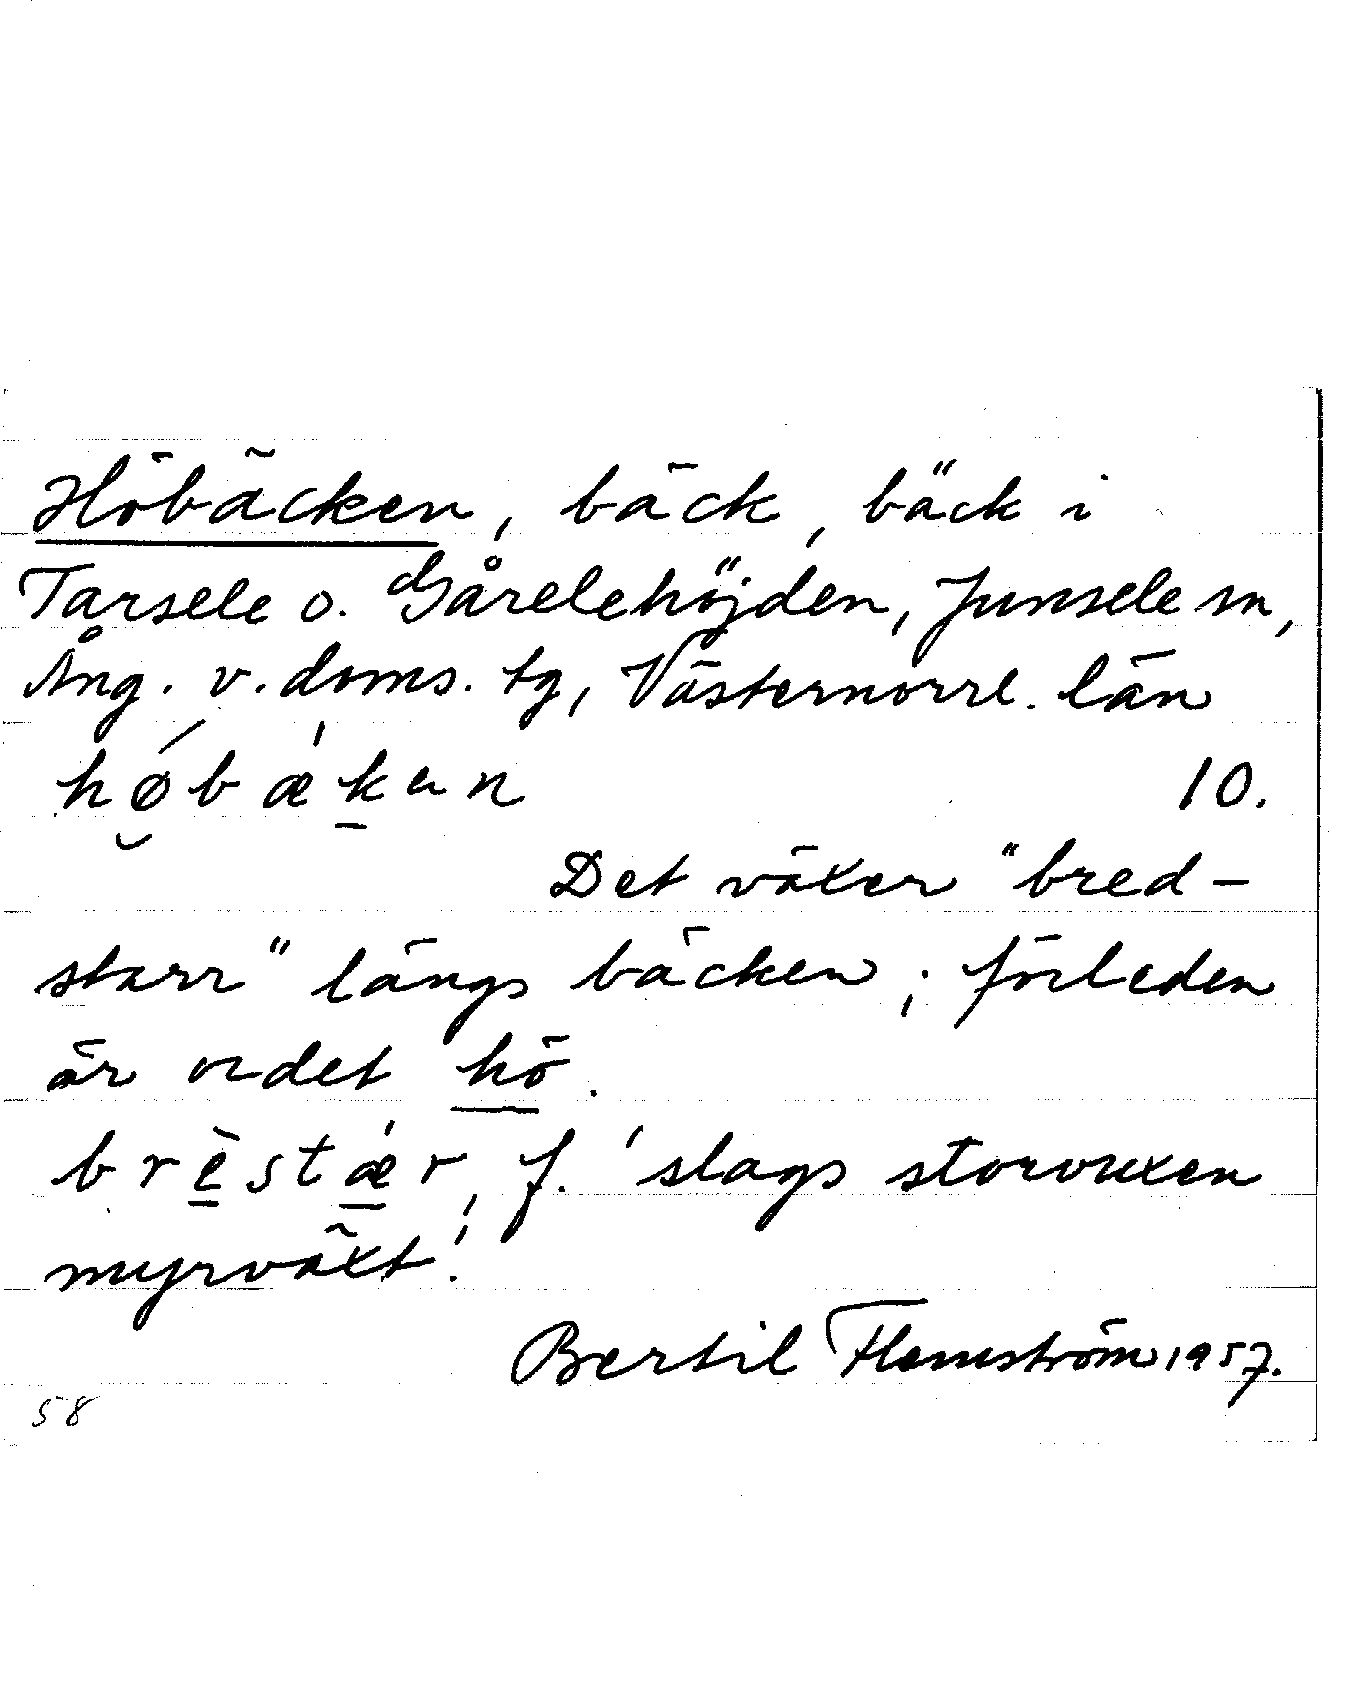 Höbäcken, bäck, bäck i
Tarsele o. Gårelehöjden, Junsele sn,
Ång. v. doms. tg, Västernorrl. län
hǿbæ̀ken 10.
Det växer "bred-
starr" längs bäcken; förleden
är ordet hö.
brèstǽr, f. 'slags storvuxen
myrväxt'.
Bertil Flemström 1957.
58